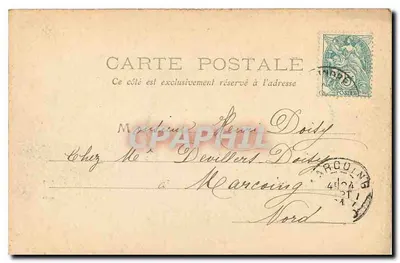 CARTE POSTALE
Ce côté est exclusivement réservé à l'adresse
Monsieur Henri Doisy
Chez Mr Devillers Doisy
à Marcoing
Nord
MARCOING
CPAPHIL